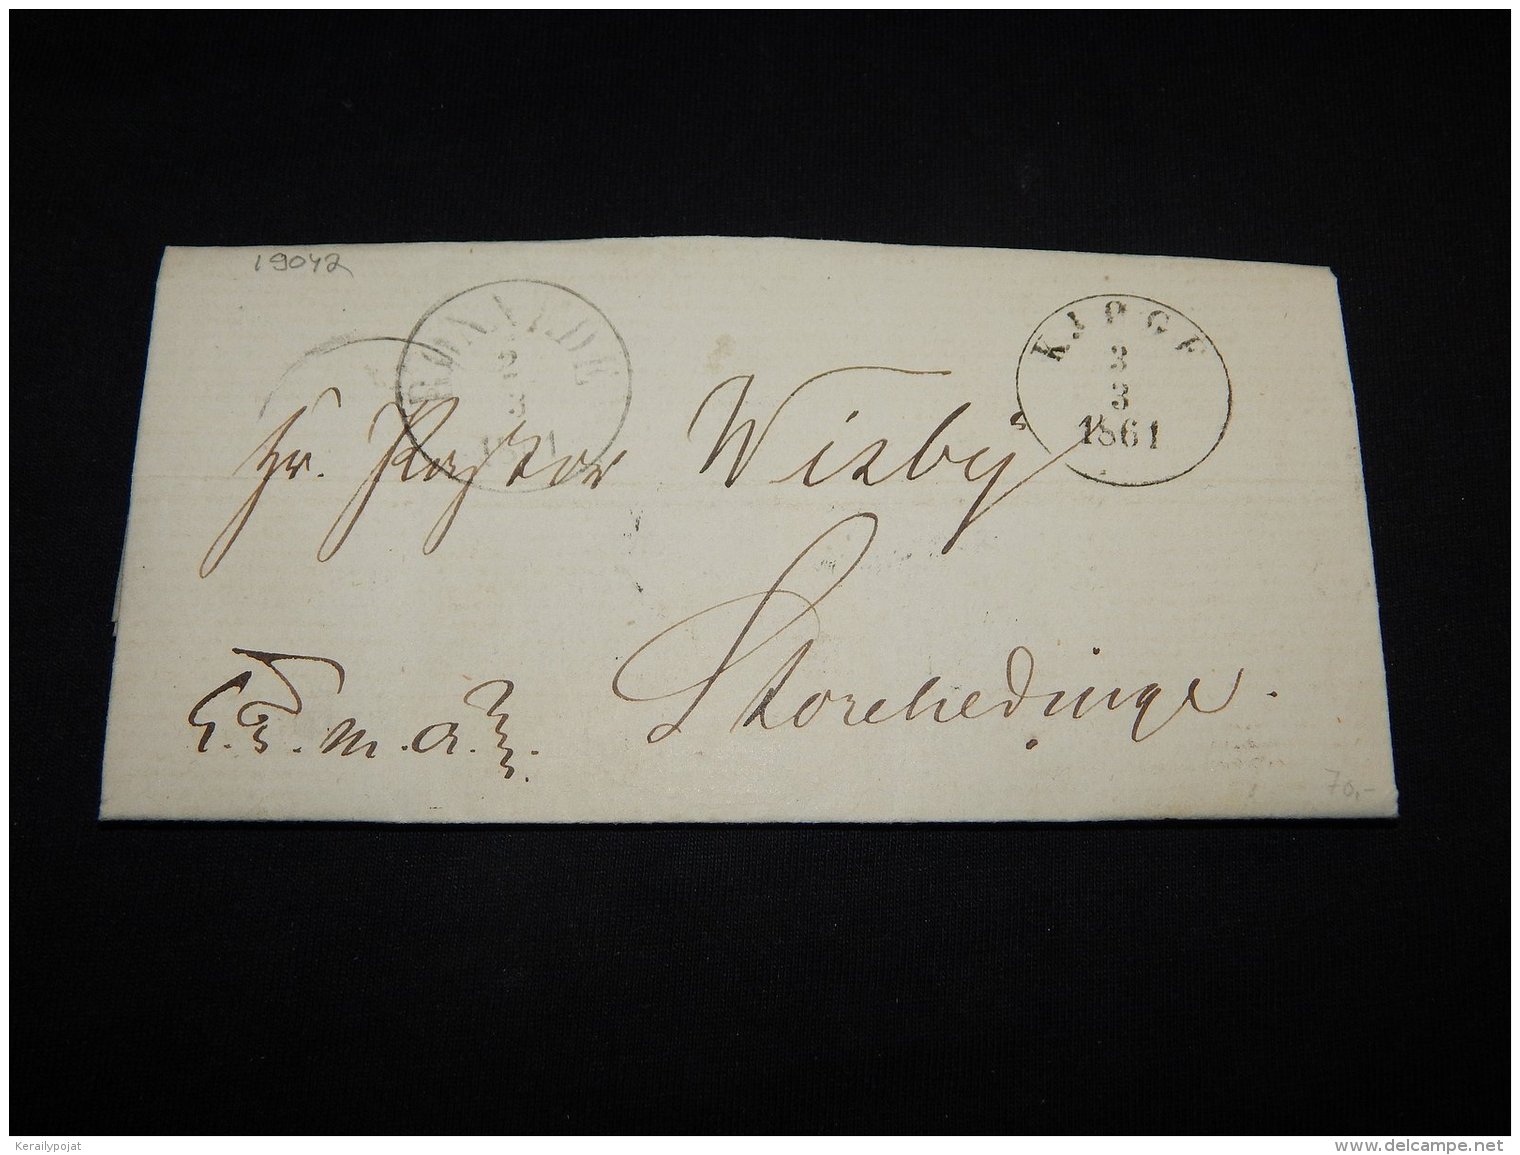 19042
RØNNEDE
2
3
KJØGE
3
3
1861
Hr. Pastor Wisby
Storehedinge.
70,-
Kerailypojat
www.delcampe.net